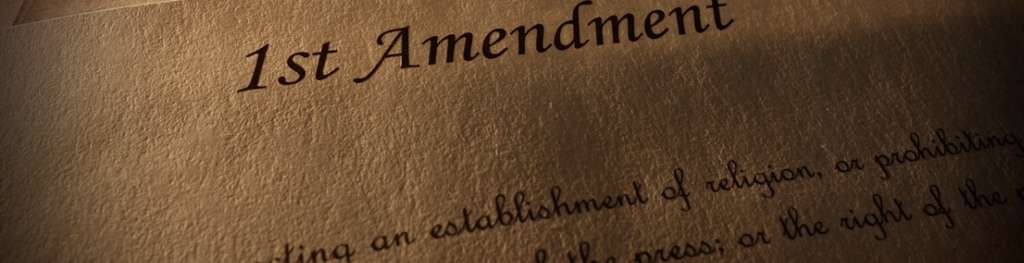 1st Amendment
ting an establishment of religion, or prohibiting
of the press; or the right of the